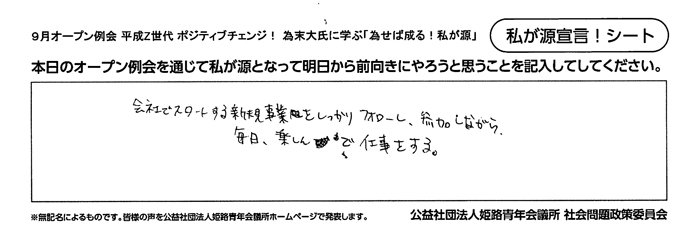 9月オープン例会 平成Z世代 ポジティブチェンジ! 為末大氏に学ぶ「為せば成る!私が源」
私が源宣言!シート
本日のオープン例会を通じて私が源となって明日から前向きにやろうと思うことを記入してしてください。
会社でスタートする新規事業をしっかりフォローし、参加しながら、
毎日、楽しんで仕事をする。
※無記名によるものです。皆様の声を公益社団法人姫路青年会議所ホームページで発表します。
公益社団法人姫路青年会議所 社会問題政策委員会